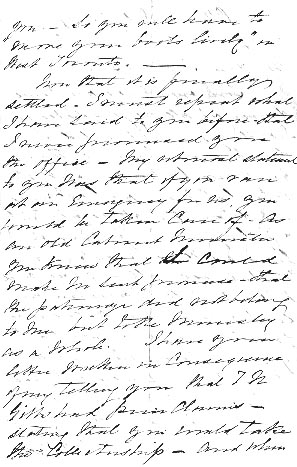 you — So you will have to
move your boots lively" in
West Toronto. —
Now that it is finally
settled. I must repeat what
I have said to you before — that
I never promised you
the office — My
to you was that if you ran
at an emergency for us, you
would be taken care of. As
an old Cabinet Minister
you knew that I could
make no such promise — that
the patronage did not belong
to me but to the Ministry
as a whole. I have your
letter written in consequence
of my telling you that T N
Gibbs had prior claims —
stating that you would take
the Collectorship — and when